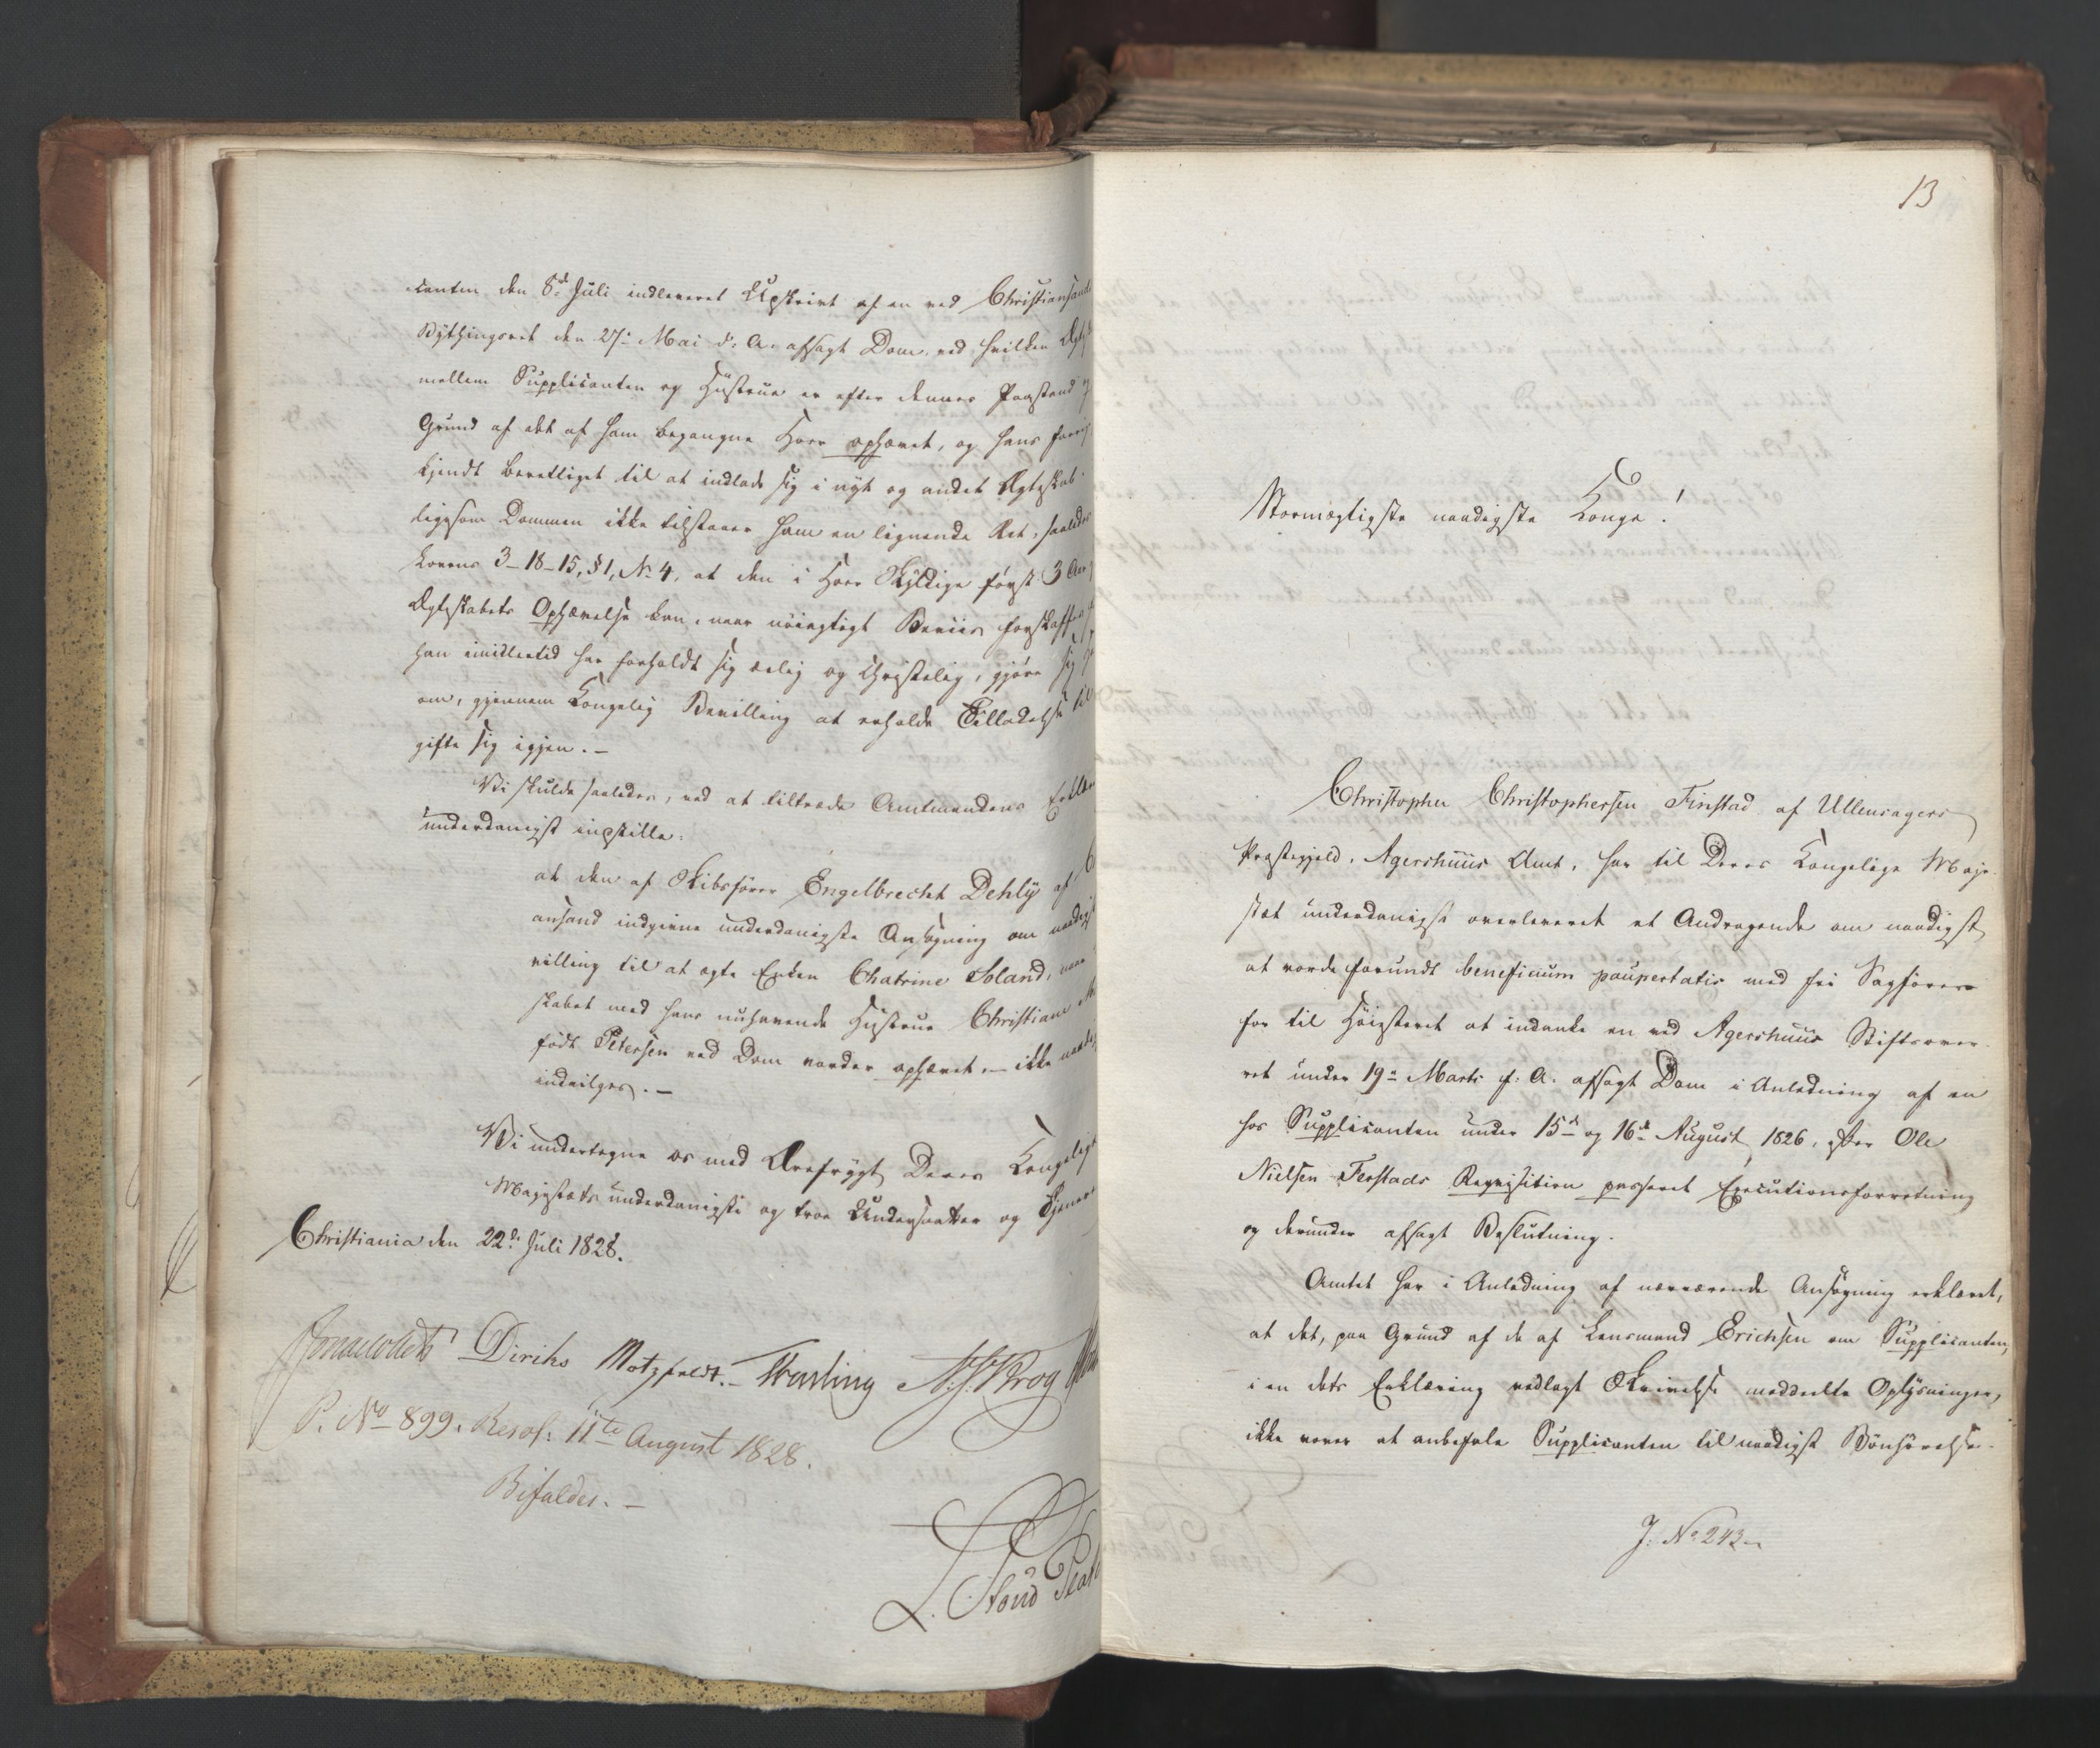 canten den 8de Juli indleveret Udskrivt af en ved Christiansands
Bythingsret den 27de Mai d: A. afsagt Dom, ved hvilken
mellem Supplicanten og Hustrue er efter dennes Paastand
Grund af det af ham begangne Hoer ophævet, og hans
kjendt berettiget til at indlade sig i nyt og andet Ægteskab.
ligesom Dommen ikke tilstaaer ham en lignende Ret, saaledes
Lovens 3-18-15, §1, No 4, at den i Hoer Skyldige først 3 Aar
Ægteskabets Ophævelse kan, naar nöiagtigt Beviis forskaffes
han imidlertid har forholdt sig ærlig og Christelig, gjøre sig
om, gjennem Kongelig Bevilling at erholde Tilladelse til
gifte sig igjen. —
Vi skulde saaledes, ved at tiltræde Amtmandens
underdanigst indstille:
at den af Skibsfører Engelbrecht Dehly af
ansand indgivne underdanigste Ansøgning om
villing til at ægte Enken Chatrine Soland,
skabet med hans nuhavende Hustrue Christiane
født Petersen ved Dom vorder ophævet, — ikke
indvilges. —
Vi undertegne os med Ærefrygt Deres Kongelige
Majestæts underdanigste og troe Undersaatter og Tjenere
Christiania den 22de Juli 1828.
Jonas Collett Diriks Motzfeldt. Fasting
P. No 899. Resol: 11te August 1828.
Bifaldes. —
13
Stormægtigste naadigste Konge!
Christopher Christophersen Finstad af Ullensagers
Præstegjeld, Agershuus Amt, har til Deres Kongelige Maje-
stæt underdanigst overleveret et Andragende om naadigst
at vorde forundt beneficium paupertatis med fri Sagfører
for til Höiesteret at indanke en ved Agershuus Stiftsover-
ret under 19de Marts f: A. afsagt Dom i Anledning af en
hos Supplicanten under 15de og 16de August 1826, efter Ole
Nielsen Ferstads Reqvisition passeret Executionsforretning
og derunder afsagt Beslutning.
Amtet har i Anledning af nærværende Ansøgning erklæret,
at det, paa Grund af de af Lensmand Erichsen om Supplicanten,
i en dets Erklæring vedlagt Skrivelse meddeelte Oplysninger,
ikke vover at anbefale Supplicanten til naadigst Bönhörelse.
J: No 243